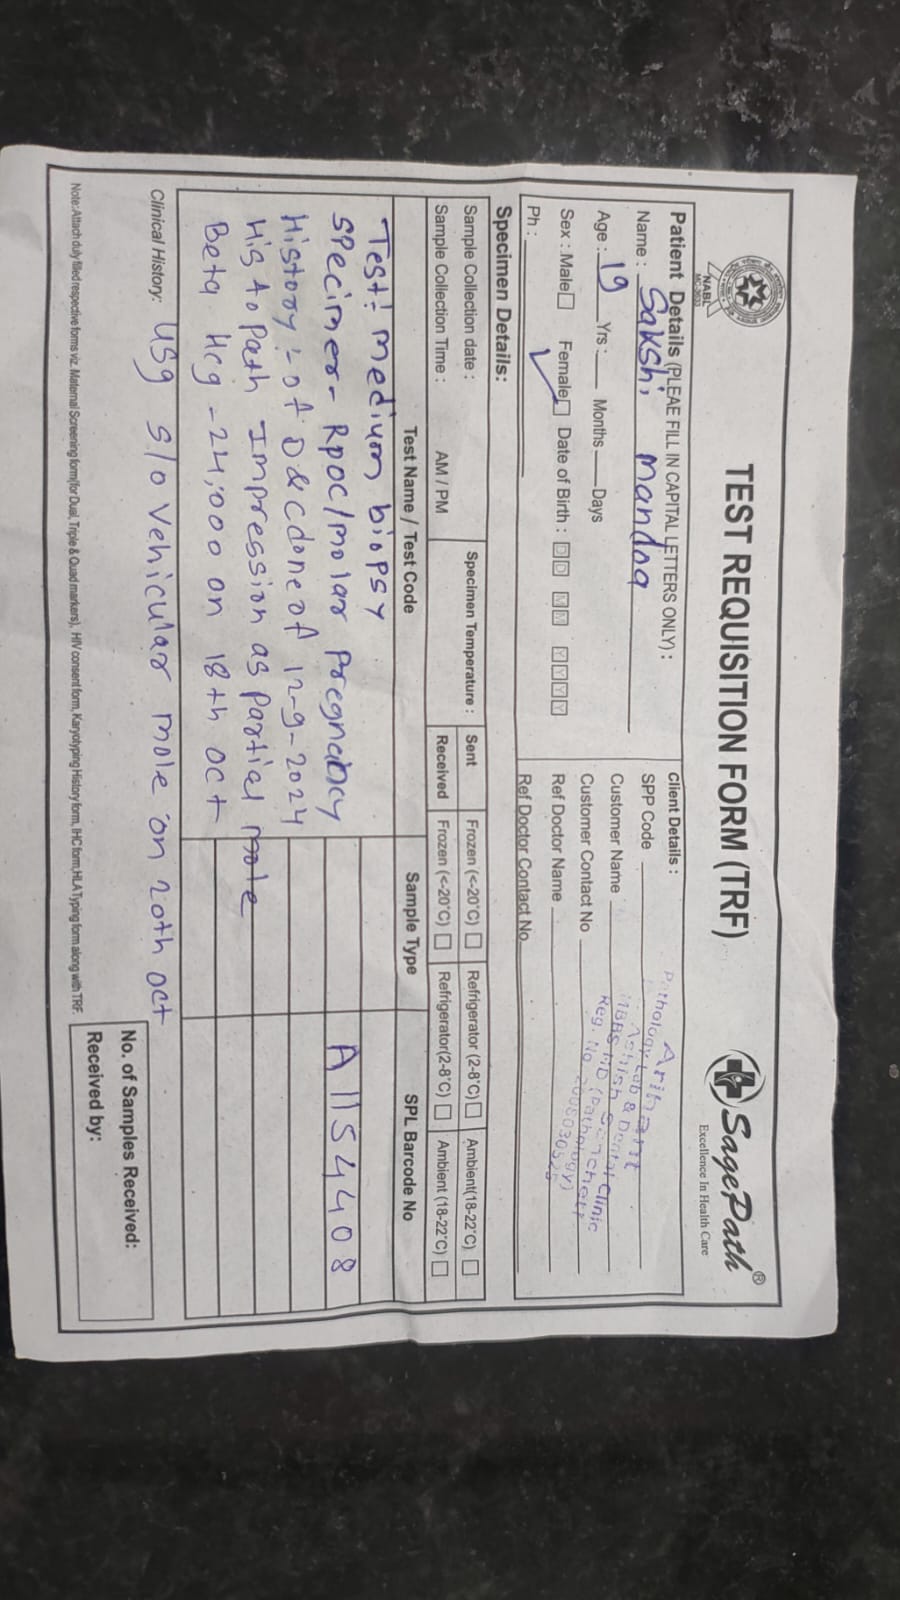 TEST REQUISITION FORM (TRF)
NABL
SagePath®
Excellence In Health Care
Patient Details (PLEAE FILL IN CAPITAL LETTERS ONLY) :
Name : Sakshi mandoa
Age : 19 Yrs : Months Days
Sex : Male Female Date of Birth : D D M M Y Y Y Y
Ph :
Client Details :
SPP Code
Customer Name
Customer Contact No
Ref Doctor Name
Ref Doctor Contact No
Arihant
Pathology Lab & Dental Clinic
MBBS MD (Pathology)
Reg. No.
Specimen Details:
Sample Collection date :
Sample Collection Time : AM / PM
Specimen Temperature :
Sent Frozen (<-20°C) Refrigerator (2-8°C) Ambient(18-22°C)
Received Frozen (<-20°C) Refrigerator(2-8°C) Ambient (18-22°C)
Test Name / Test Code Sample Type SPL Barcode No
Test:- medium biopsy
Specimen- Rpoc/molar pregnancy A1154408
History:- of D&c done of 12-9-2024
Histopath Impression as Partial mole
Beta Hcg - 24,000 on 18th oct
Clinical History: usg s/o vehicular mole on 20th oct
No. of Samples Received:
Received by:
Note:Attach duly filled respective forms viz. Maternal Screening form(for Dual, Triple & Quad markers), HIV consent form, Karyotyping History form, IHC form,HLA Typing form along with TRF.